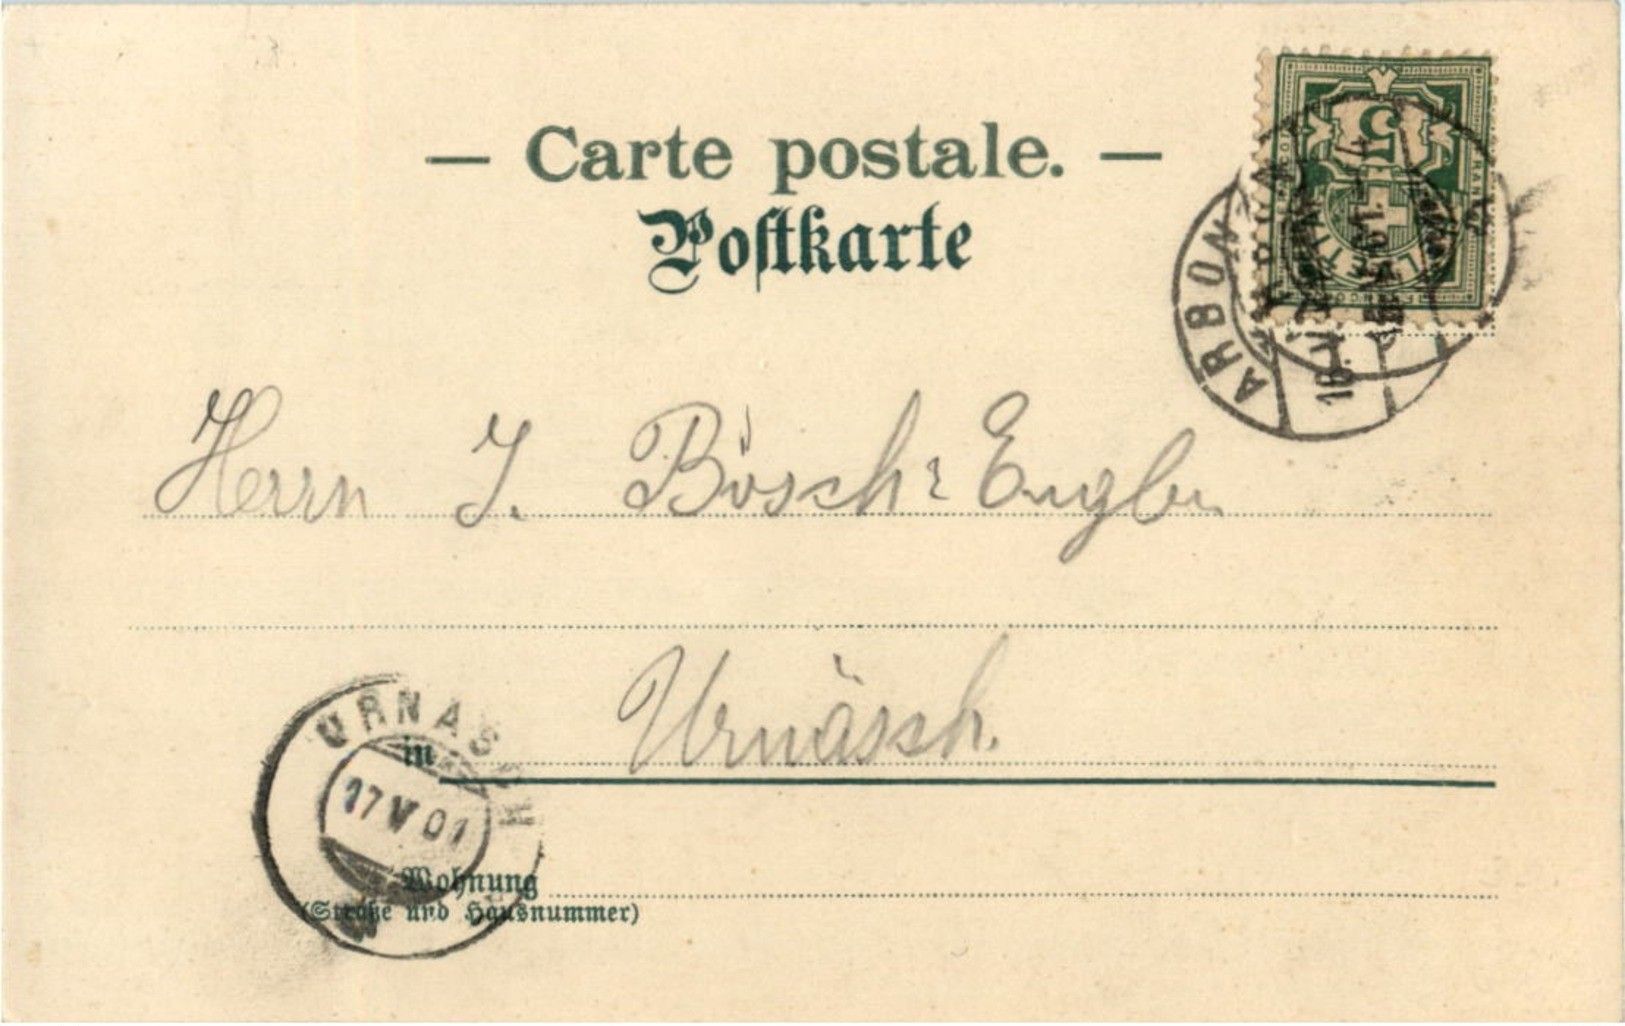 — Carte postale. —
Postkarte
5
ARBON
ARBON
Herrn J. Bösch-Engler
Urnässch.
in
URNÄSCH
17 V 01
Wohnung
(Straße und Hausnummer)